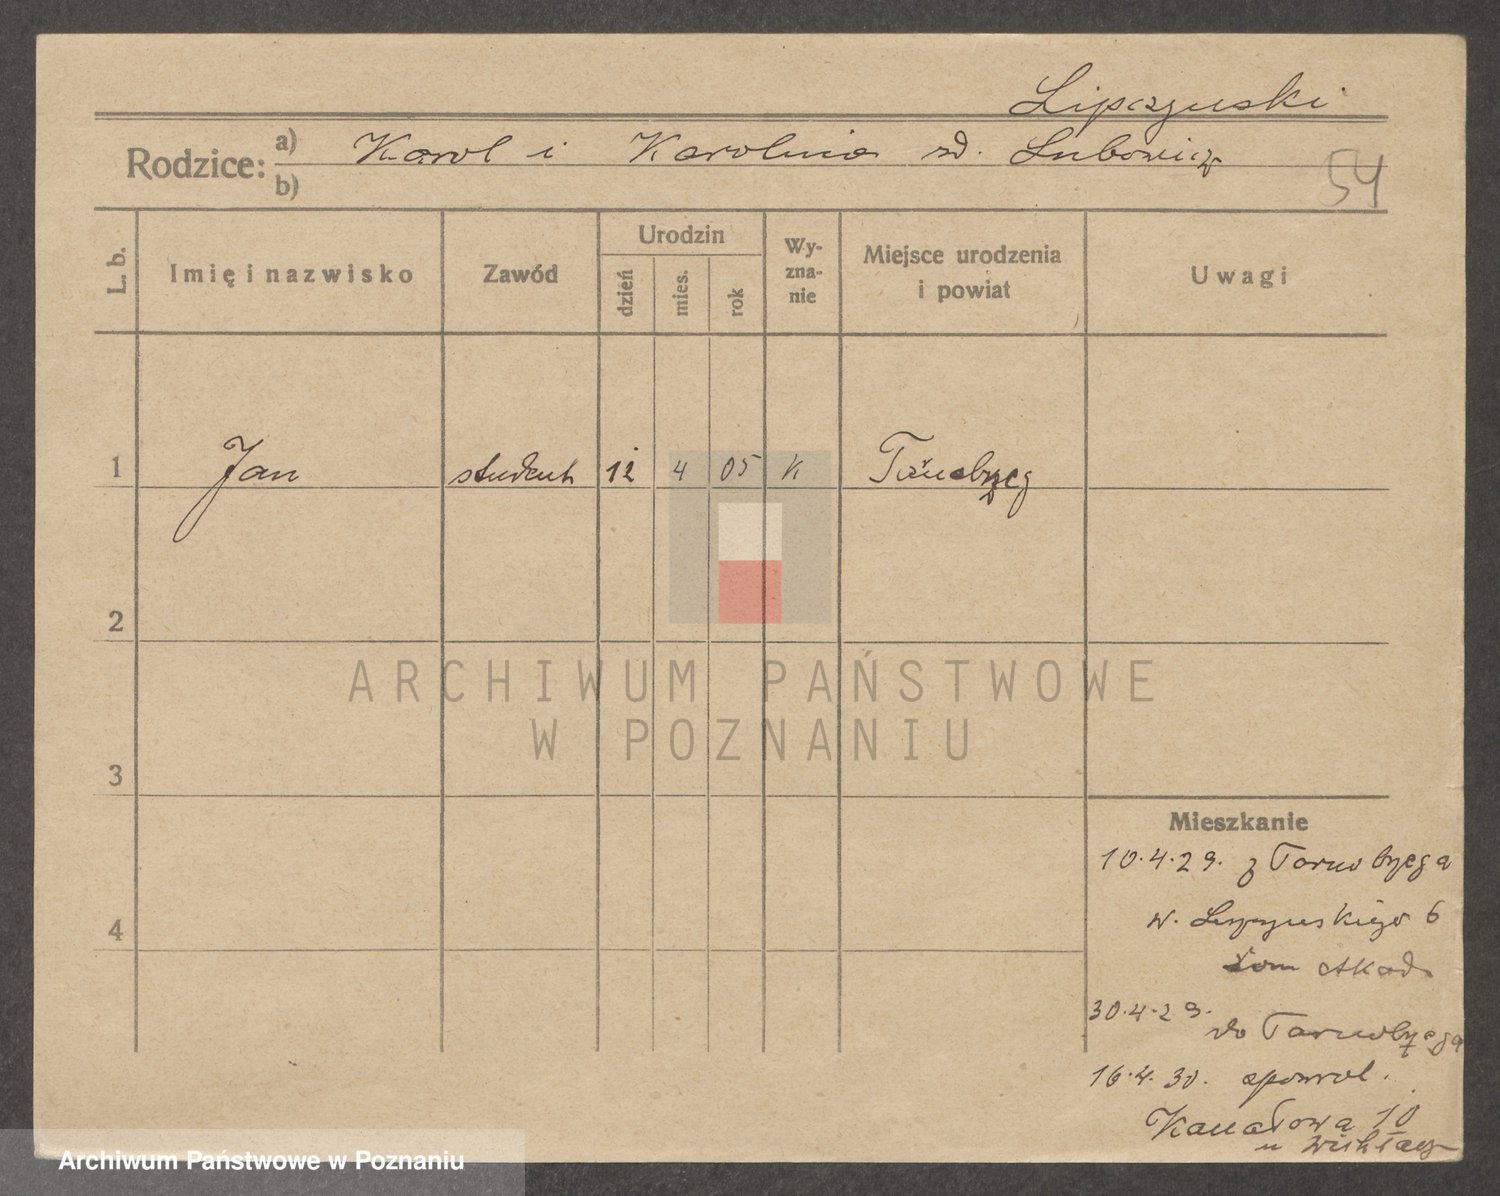 Lipczyński
Rodzice: a) Karol i Karolina zd. Lubowicz
b)
54
L. b.
Imię i nazwisko
Zawód
Urodzin
dzień
mies.
rok
Wy-
zna-
nie
Miejsce urodzenia
i powiat
Uwagi
1 Jan student 12 4 05 K Tarnobrzeg
2
3
4
Mieszkanie
10.4.29. z Tarnobrzega
6
Dom Akad.
30.4.29.
do Tarnobrzega
16.4.30. z powrot.
Kanałowa 10
u
ARCHIWUM PAŃSTWOWE
W POZNANIU
Archiwum Państwowe w Poznaniu